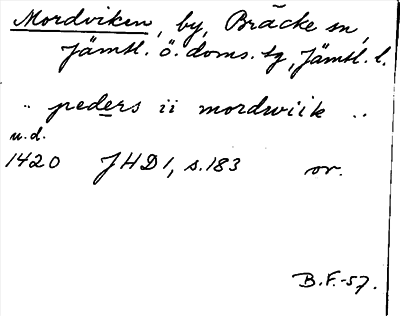 Mordviken, by, Bräcke sn,
Jämtl. ö. doms. tg, Jämtl. l.
.. peders ii mordwiik ..
u.d.
1420 JHD 1, s. 183 or.
B.F.-57.